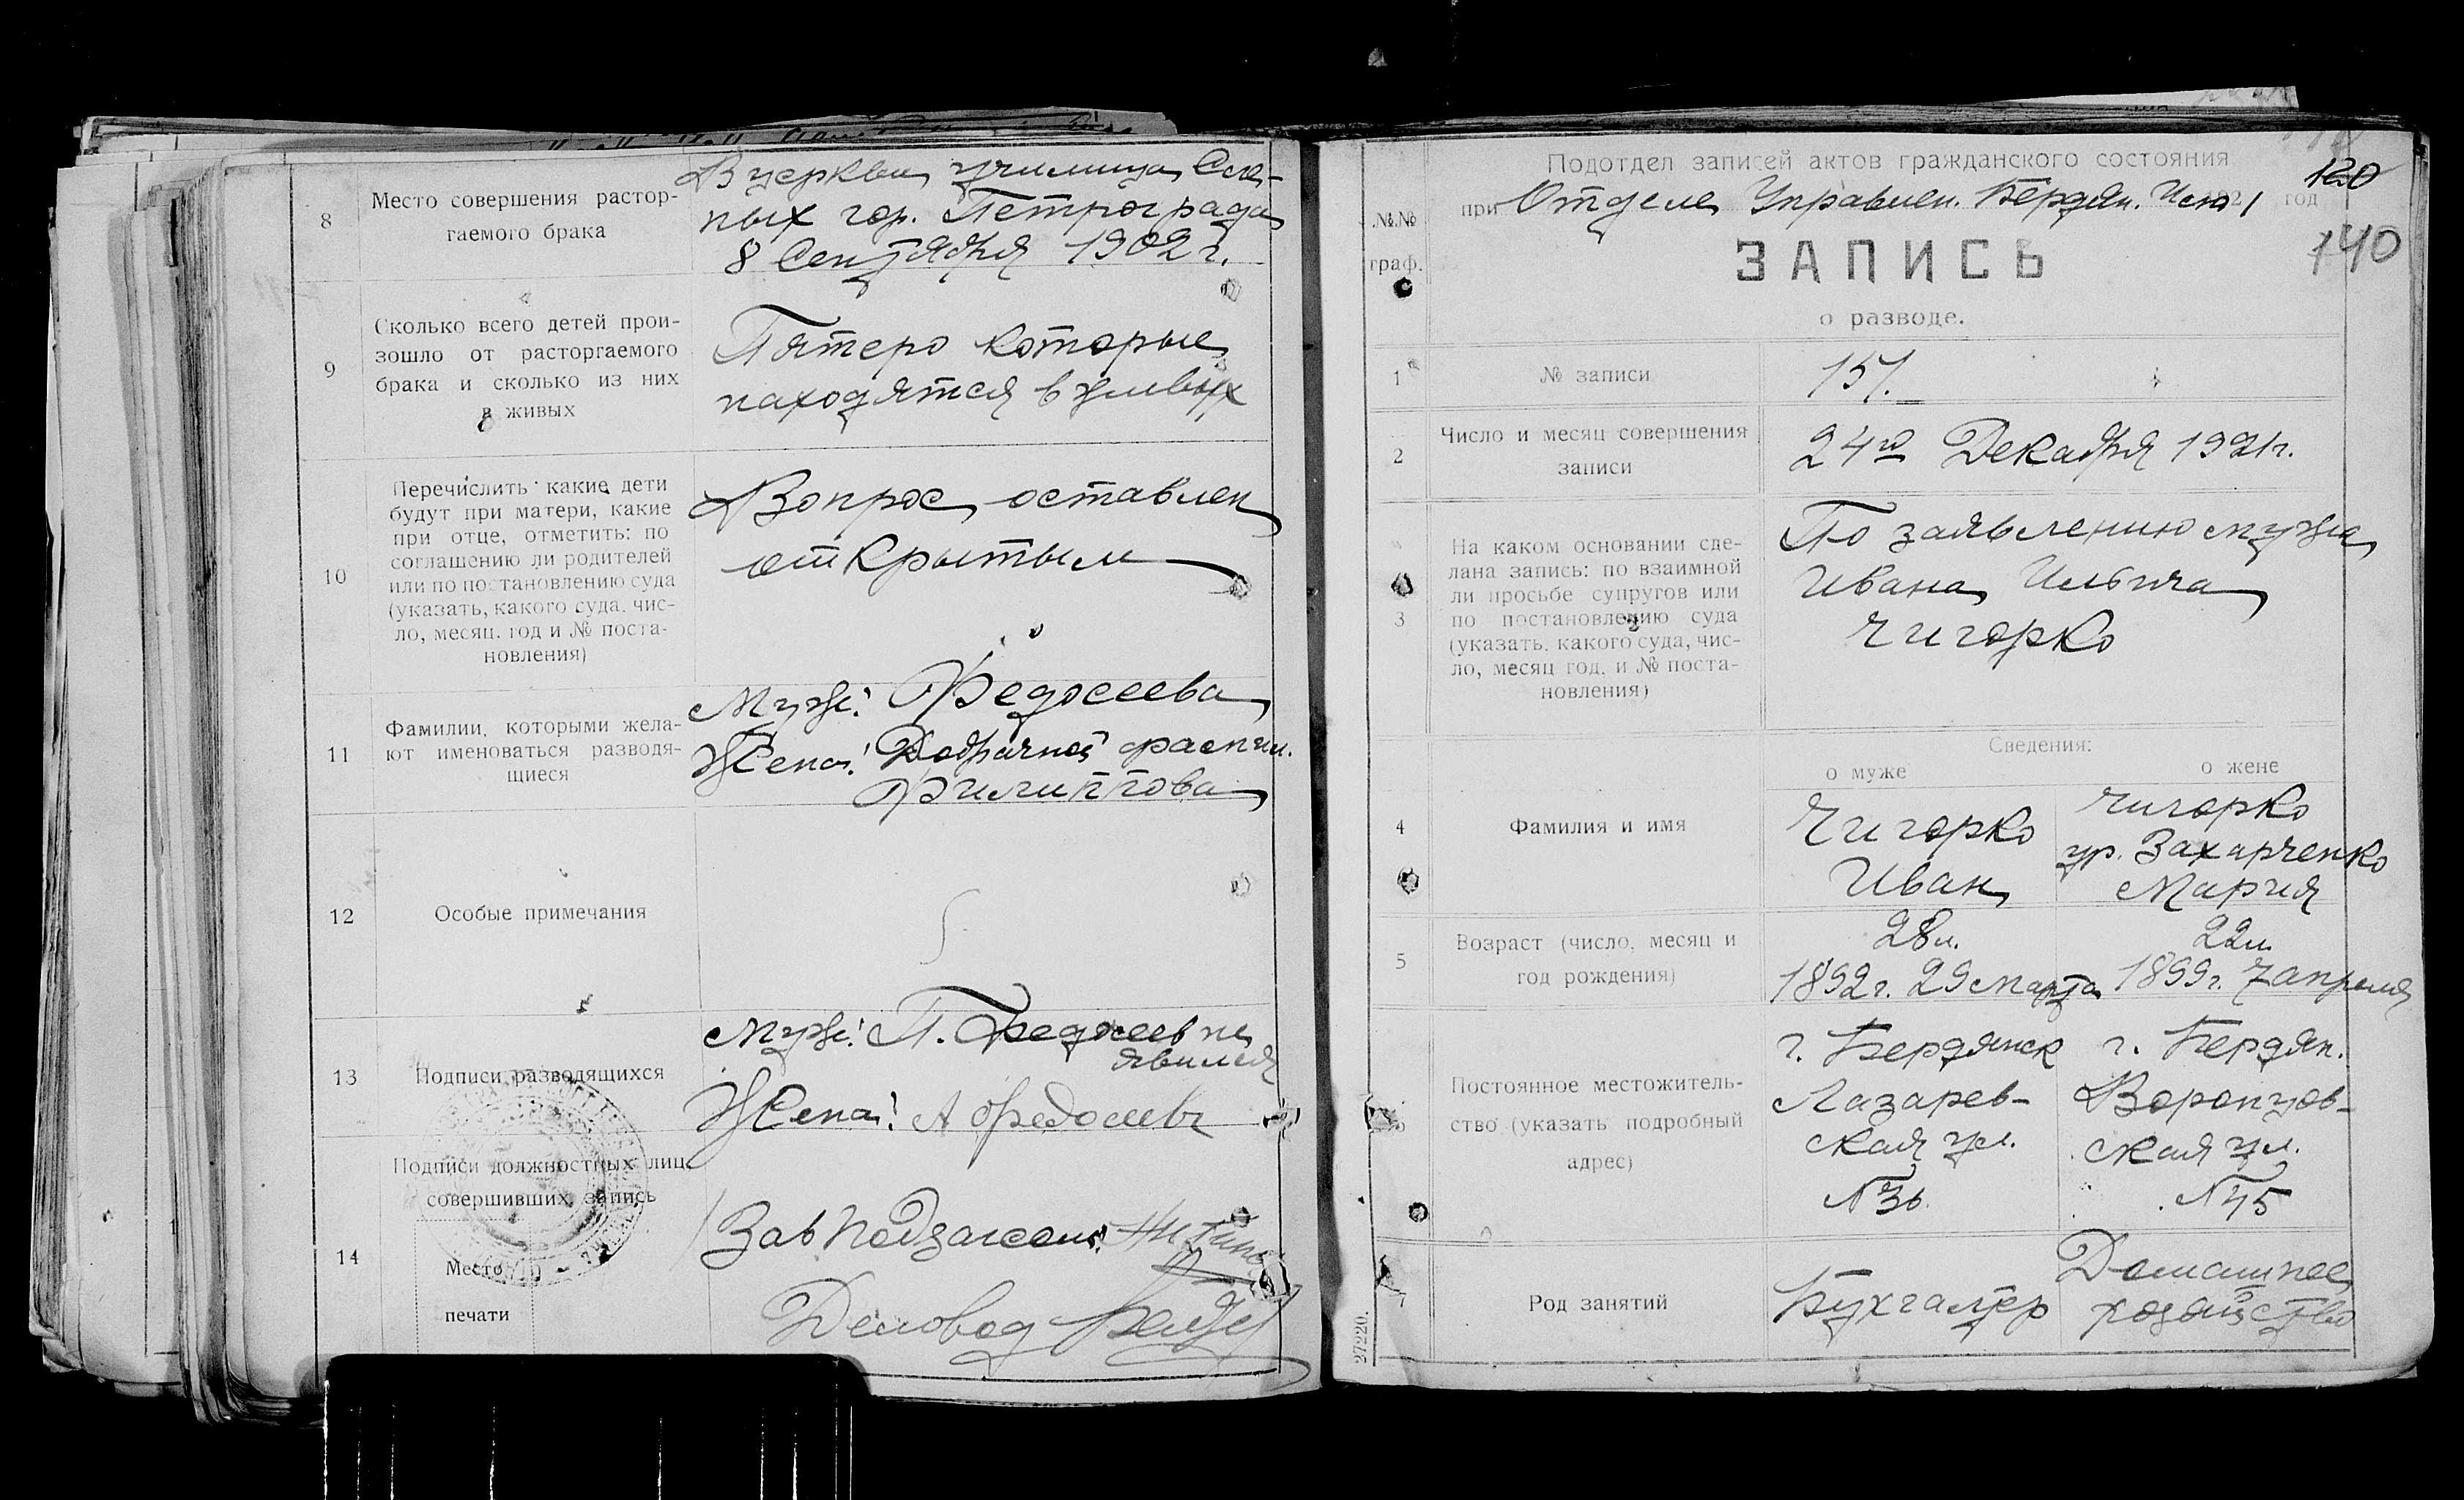 8
Место совершения растор-
гаемого брака
В церкви училища Сле-
пых гор. Петрограда
8 Сентября 1902 г.
9
Сколько всего детей прои-
зошло от расторгаемого
брака и сколько из них
в живых
Пятеро которые
находятся в живых
10
Перечислить какие дети
будут при матери, какие
при отце, отметить: по
соглашению ли родителей
или по постановлению суда
(указать, какого суда, чис-
ло, месяц, год и № поста-
новления)
Вопрос оставлен
открытым
11
Фамилии, которыми жела-
ют именоваться разводя-
щиеся
Муж: Федосеева
Жена: Добрачной фамил.
Филиппова
12
Особые примечания
13
Подписи разводящихся
Муж: П. Федосеев не
явился
Жена: А Федосеева
14
Подписи должностных лиц,
совершивших запись
Место
печати
Зав Подзагсом:
Деловод
120
140
Подотдел записей актов гражданского состояния
№№
граф.
при Отделе Управлен. Бердян. Исп 1921 год
ЗАПИСЬ
о разводе.
1
№ записи
157.
2
Число и месяц совершения
записи
24го Декабря 1921г.
3
На каком основании сде-
лана запись: по взаимной
ли просьбе супругов или
по постановлению суда
(указать, какого суда, чис-
ло, месяц год, и № поста-
новления)
По заявлению мужа
Ивана Ильича
Чигорко
Сведения:
о муже
о жене
4
Фамилия и имя
Чигорко
Иван
Чигорко
ур. Захарченко
Мария
5
Возраст (число, месяц и
год рождения)
28 л.
1892 г. 29 марта
22 л.
1899 г. 7 апреля
6
Постоянное местожитель-
ство (указать подробный
адрес)
г. Бердянск
Лазарев-
ская ул.
№ 36
г. Бердян.
Воронцов-
ская ул.
№ 45
Род занятий
Бухгалтер
Домашнее
хозяйство
27220.